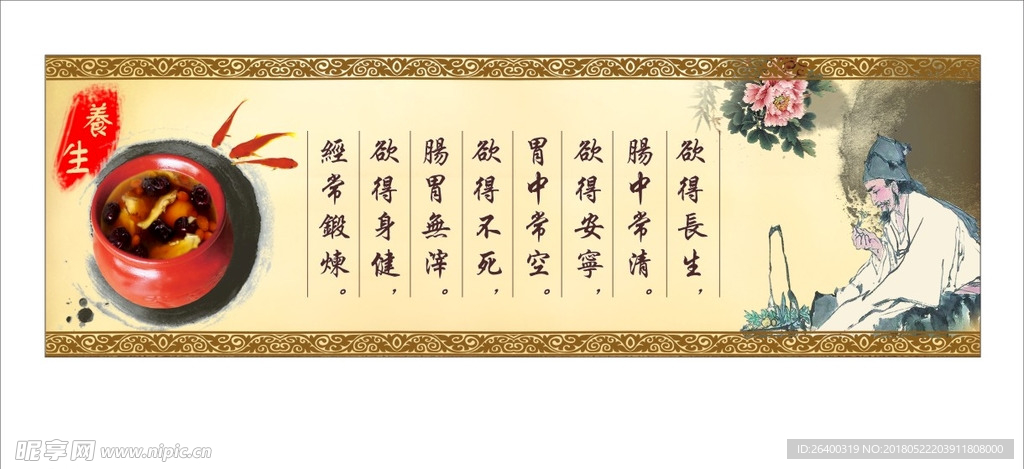 養生
欲得長生，
腸中常清。
欲得安寧，
胃中常空。
欲得不死，
腸胃無滓。
欲得身健，
經常鍛煉。
昵享网 www.nipic.cn
ID:26400319 NO:20180522203911808000